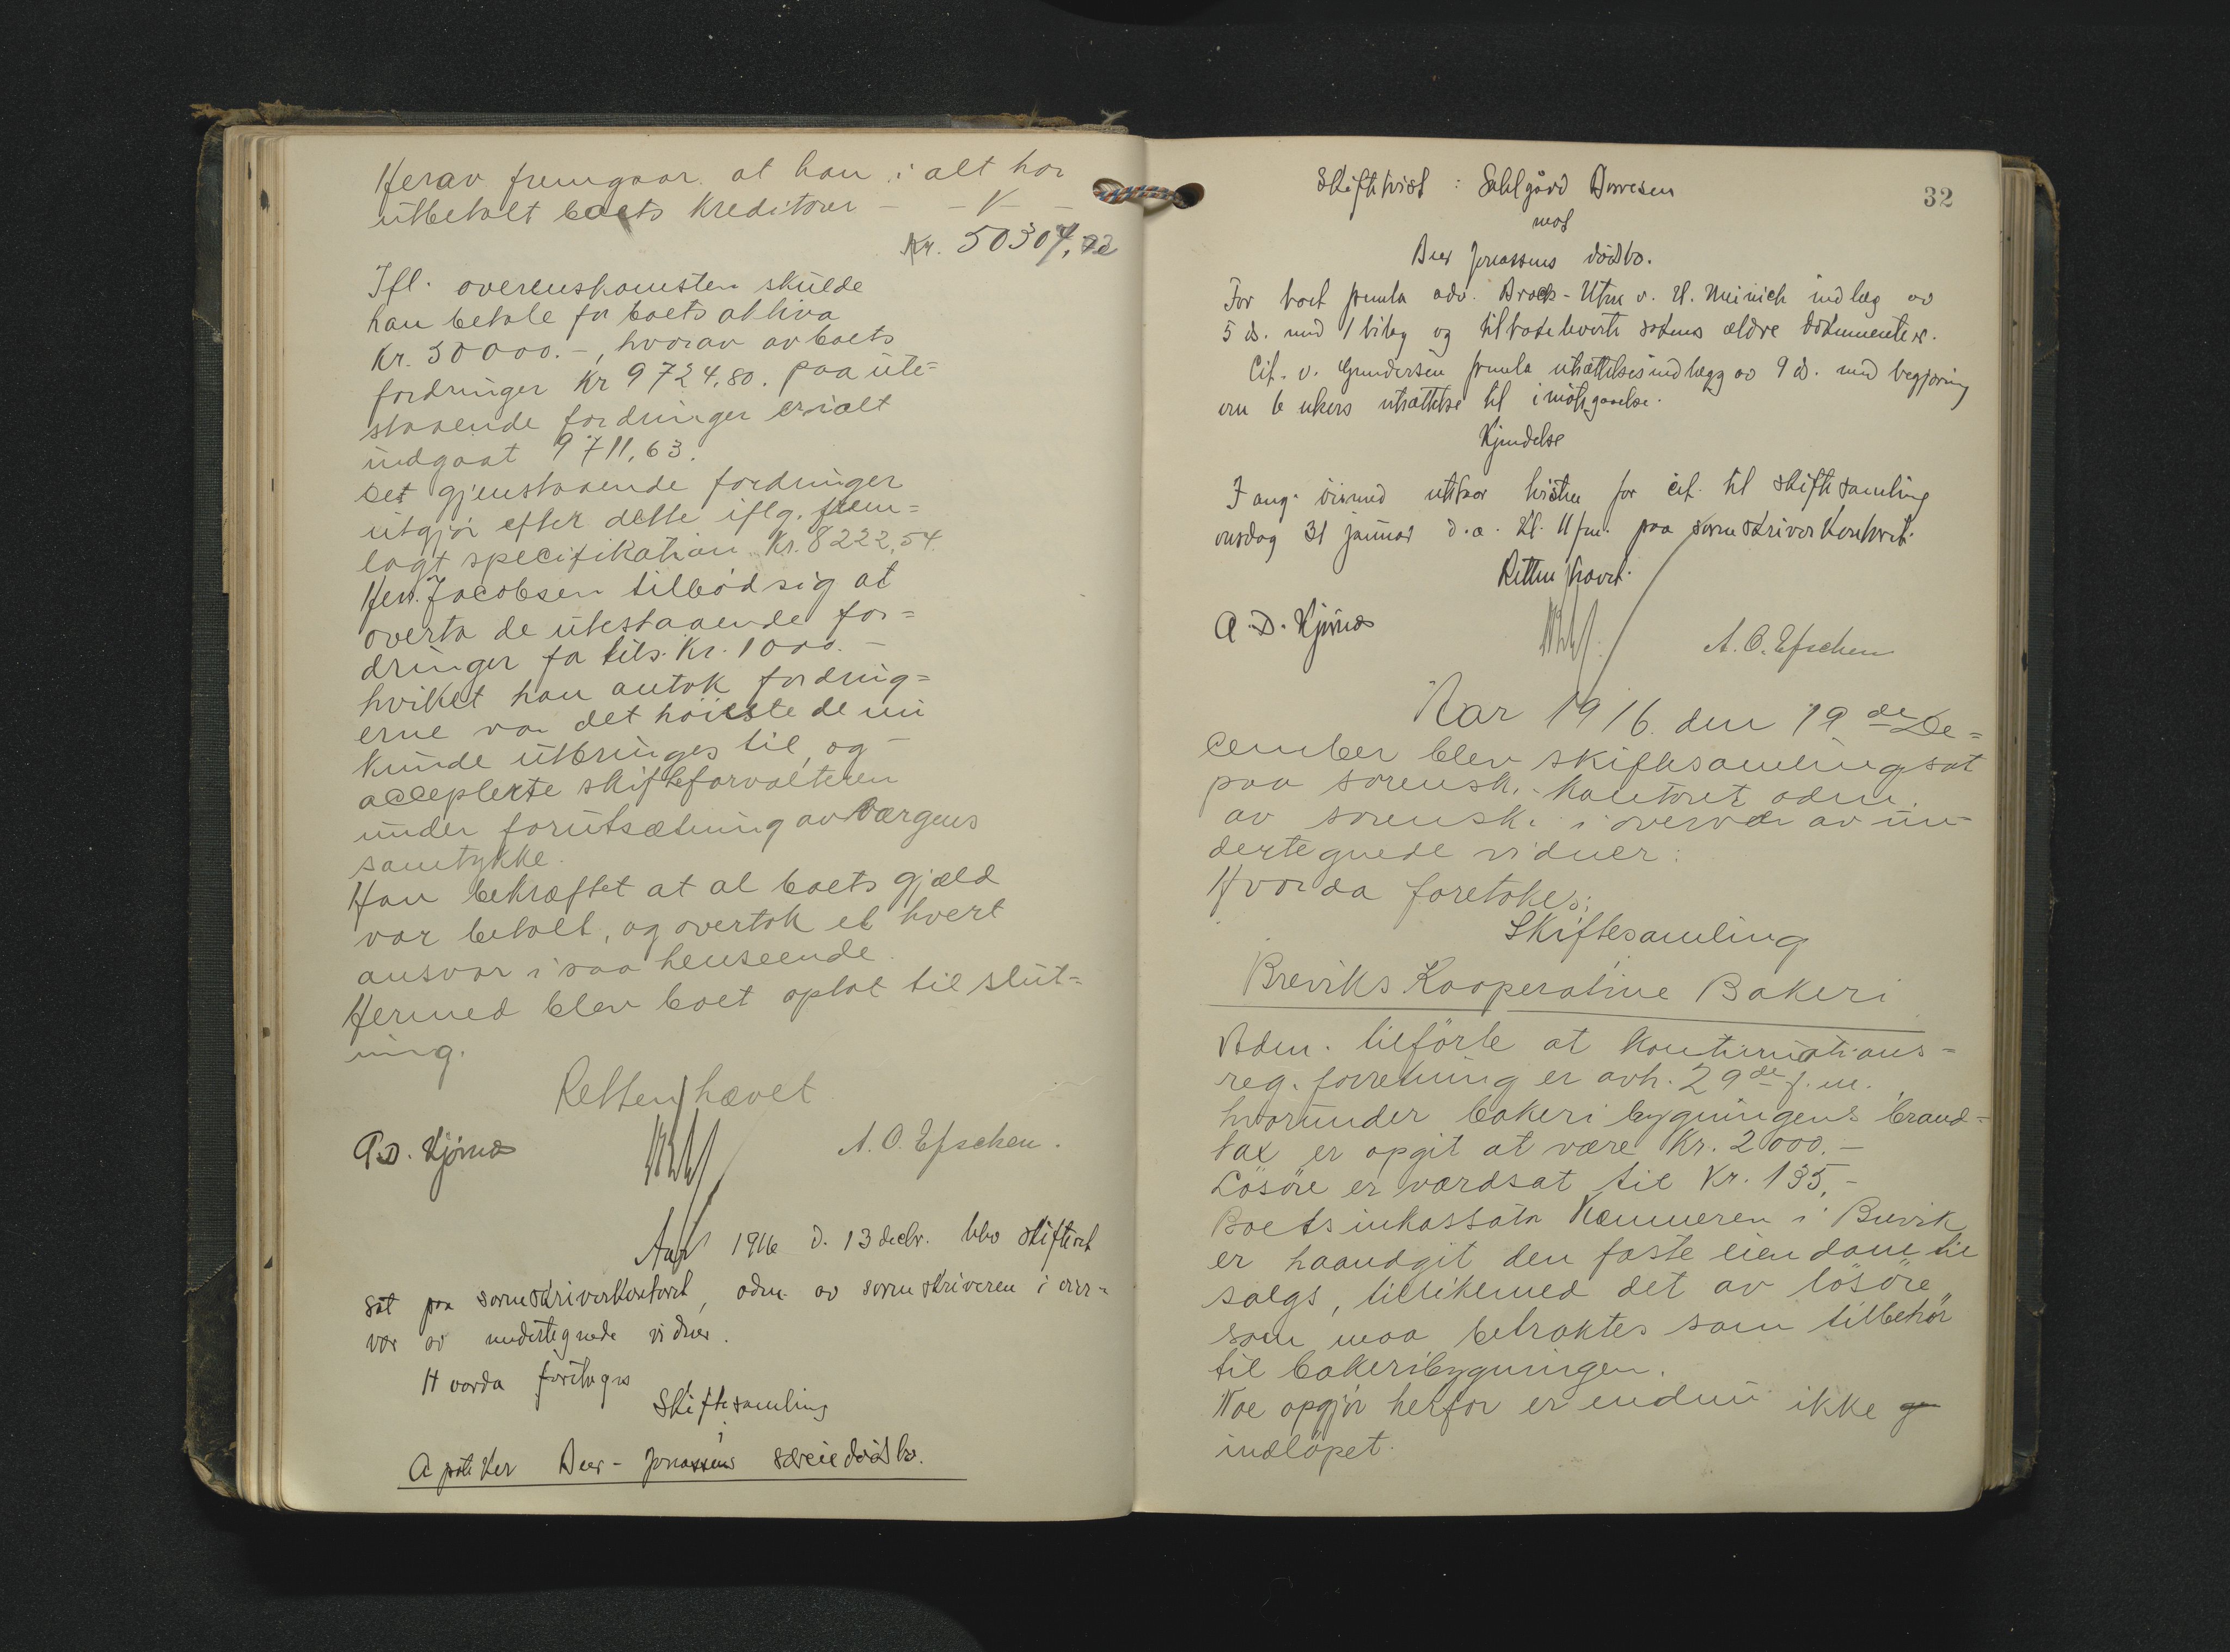 Herav fremgaar at han i alt har
utbetalt boets kreditorer - - V -
Kr. 50307,72
Ifl. overenskomsten skulde
han betale for boets aktiva
Kr. 30000.-, hvorav av boets
fordringer Kr 9724,80. paa ute=
staaende fordringer er ialt
indgaat 9711,63.
De gjenstaaende fordringer
utgjør efter dette iflg. frem=
lagt specifikation Kr. 8222,54.
Herr Jacobsen tilbød sig at
overta de utestaaende for=
dringer for tils. Kr. 1000.-
hvilket han antok fordring=
erne var det høieste de nu
kunde utbringes til, og
accepterte skifteforvalteren
under forutsætning av værgens
samtykke.
Han bekræftet at al boets gjæld
var betalt, og overtok et hvert
ansvar i saa henseende.
Hermed blev boet optat til slut=
ning.
Retten hævet
A. O. Efschen.
Aar 1916 d. 13 decbr. blev skifteret
sat paa sorenskriverkontoret, adm. av sorenskriveren i over=
vær av undertegnede vidner.
Hvorda foretages
Skiftesamling
i
Apoteker Beer-Jonassens særeiedødsbo.
32
Skiftetvist : Dahlgård Andresen
mot
Beer Jonassens dødsbo.
For boet fremla adv. Brock-Utne v. H. Meinich indlæg av
5 ds. med 1 bilag og tilbakeleverte sakens ældre dokumenter.
Cit. v. Gundersen fremla utsættelsesindlægg av 9 ds. med begjæring
om 6 ukers utsættelse til imøtegaaelse.
Kjendelse
I ang. øiemed utstaar tvisten for cit. til skiftesamling
onsdag 31 januar d.a. kl. 11 fm. paa sorenskriverkontoret.
Retten hævet.
A. O. Efschen
Aar 1916 den 19de De=
cember blev skiftesamling sat
paa sorensk.-kontoret adm.
av sorensk. i overvær av un-
dertegnede vidner:
Hvorda foretokes:
Skiftesamling
i
Breviks Kooperative Bakeri
Adm. tilførte at kontinuations=
reg. forretning er avh. 29de f. m.,
hvorunder bakeribygningens brand=
tax er opgit at være Kr. 2000.-
Løsøre er værdsat til Kr. 135,-
Boets inkassator Kæmneren i Brevik
er haandgit den faste eiendom til
salgs, tillikemed det av løsøre
som maa betraktes som tilbehør
til bakeribygningen.
Noe opgjør herfor er endnu ikke
indløpet.